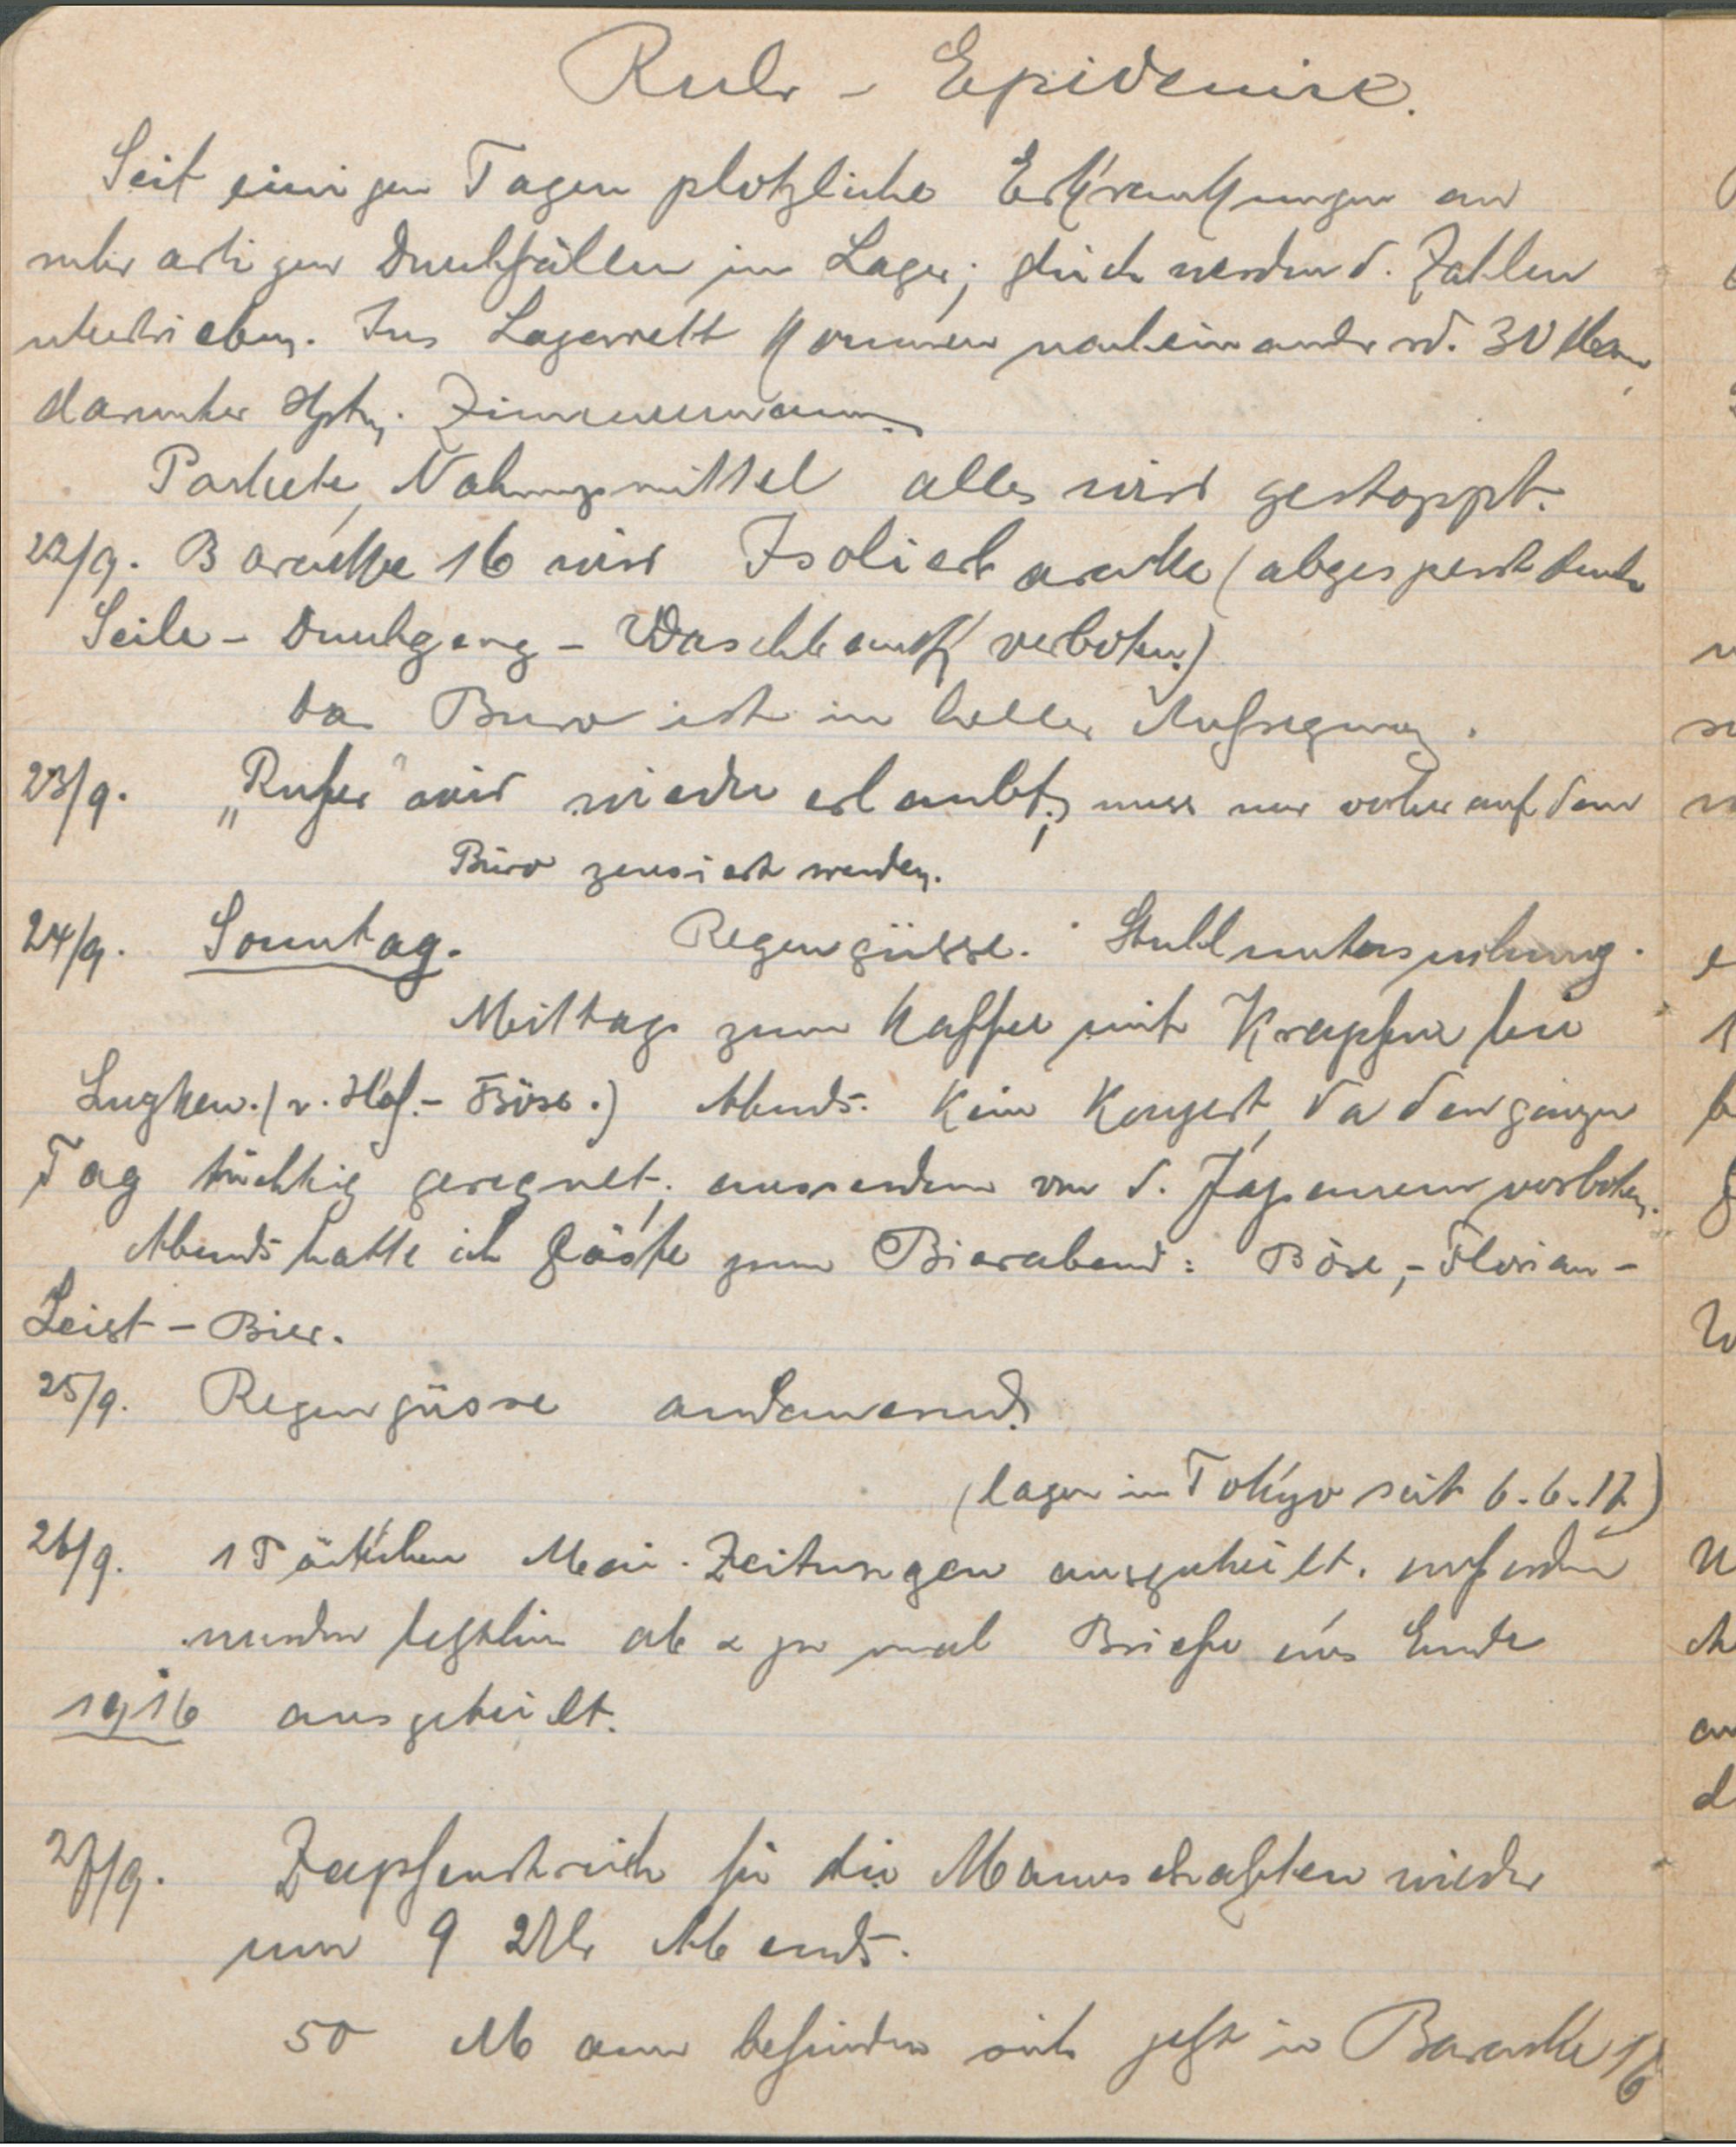 Ruhr - Epidemie.
Seit einigen Tagen plotzliche Erkrankungen an
ruhrartigen Durchfällen im Lager; gleich werden d. Zahlen
übertrieben. Ins Lagerrett kommen nacheinander rd. 30 Mann,
darunter Hptm. Zimmermann.
Packete, Nahrungsmittel alles wird gestoppt.
22/9. Baracke 16 wird Isolierbaracke (abgesperrt durch
Seile - Durchgang - Waschbank verboten.)
Das Buro ist in heller Aufregung.
23/9. „Rufer" wird wieder erlaubt, muss nur vorher auf dem
Büro zensiert werden.
24/9. Sonntag. Regengüsse. Stuhluntersuchung.
Mittags zum Kaffee mit Krapfen bei
(v. Hof. - Böse.) Abends kein Konzert, da den ganzen
Tag tüchtig geregnet; ausserdem von d. Japanern verboten.
Abends hatte ich Gäste zum Bierabend: Böse, - Florian -
Leist - Bier.
25/9. Regengüsse andauernd.
(lagen in Tokyo seit 6.6.17)
26/9. 1 Päckchen Mai-Zeitungen ausgeteilt. ausserdem
wurden letzthin ab & zu mal Briefe aus Ende
1916 ausgeteilt.
27/9. Zapfenstreich für die Mannschaften wieder
um 9 Uhr Abends.
50 Mann befinden sich jetzt in Baracke 16